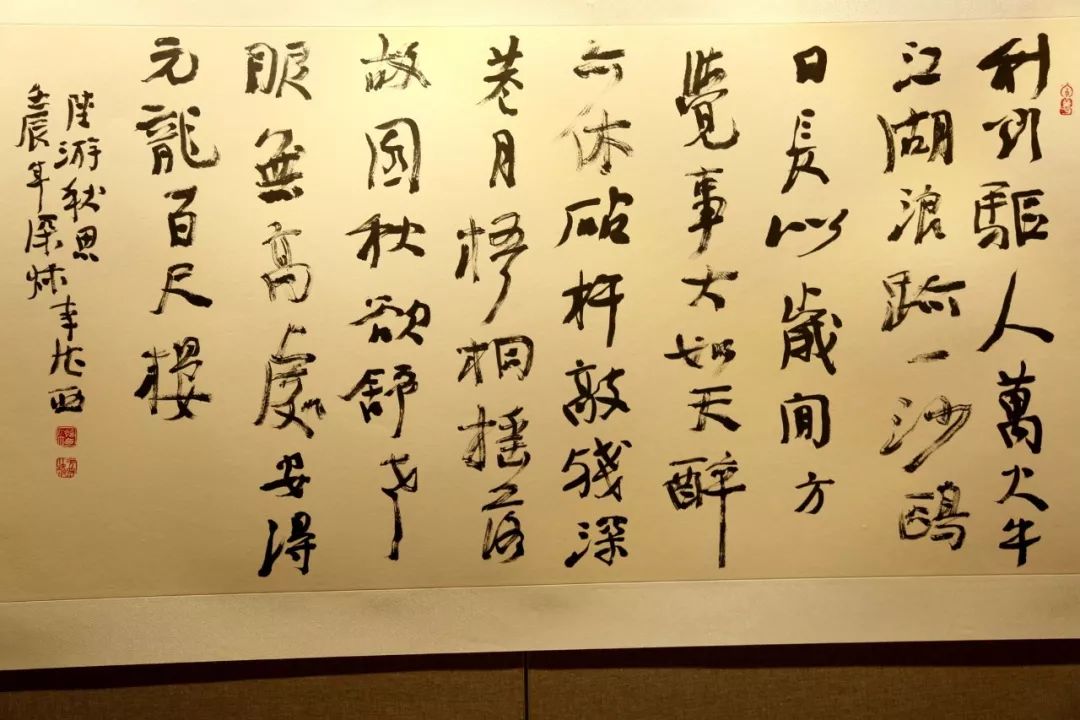 利驅人萬火牛
江湖浪跡一沙鷗
日長似歲間方
覺事大如天醉
亦休砧杵敲殘深
巷月梧桐搖落
故園秋欲舒老
眼無高處安得
元龍百尺樓
陸游秋思
壬辰年深秌